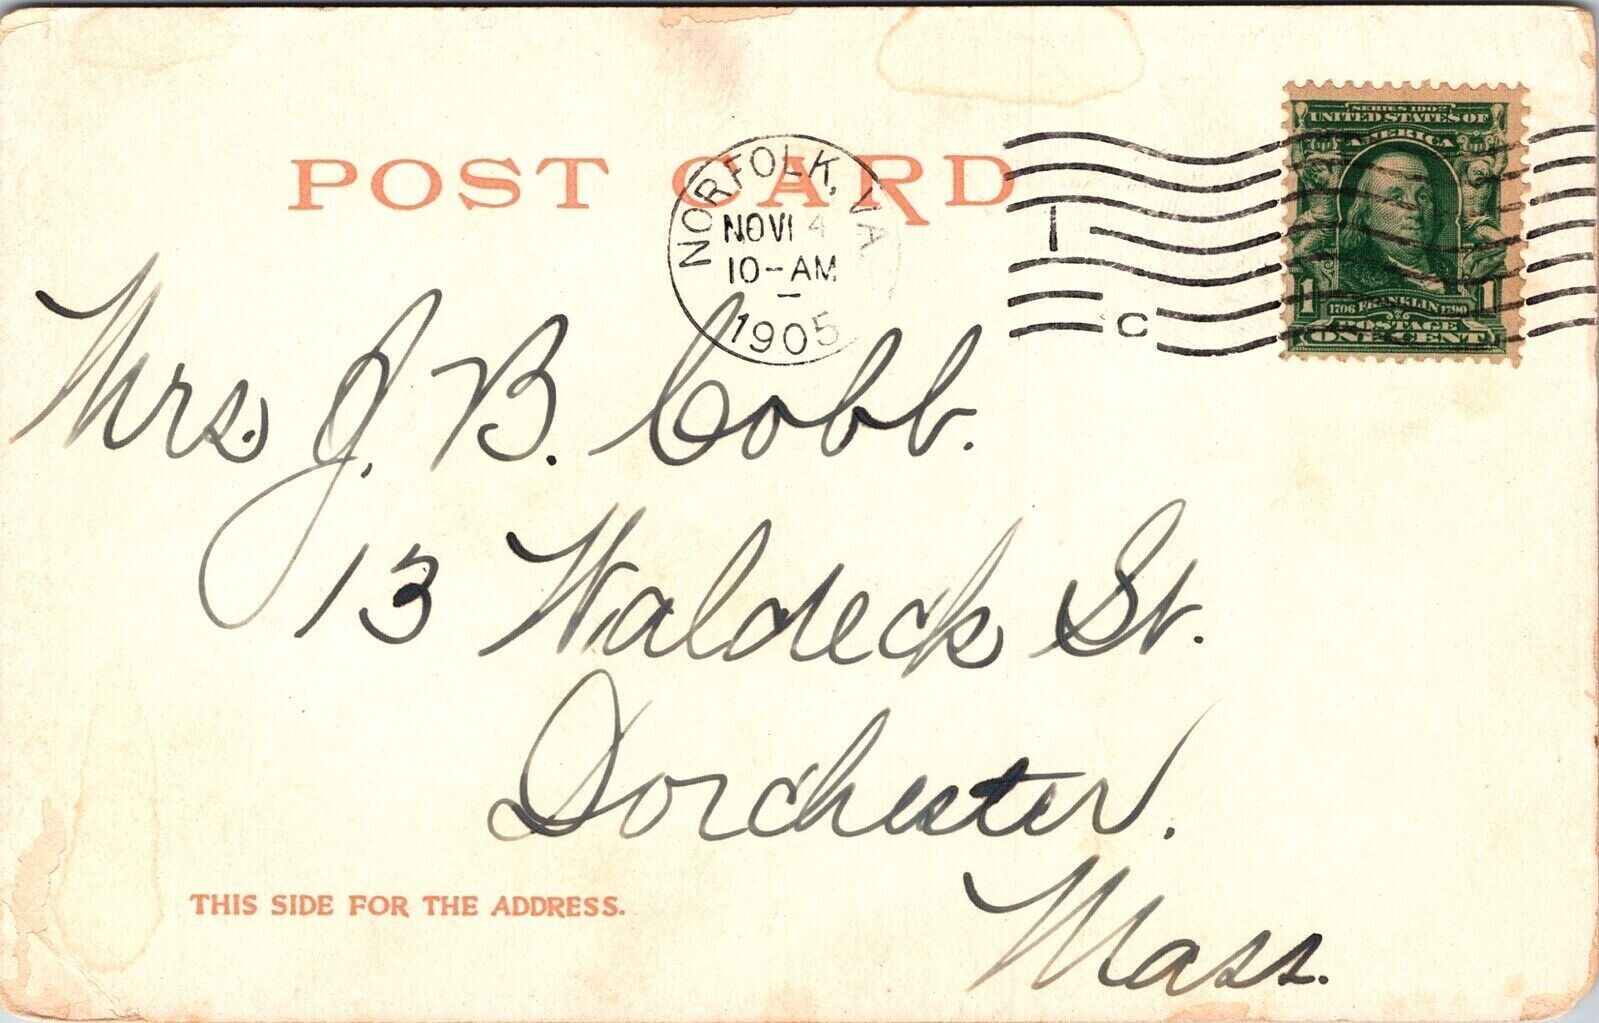 POST CARD
NORFOLK, VA
NOV 14
10-AM
1905
1
C
SERIES 1902
UNITED STATES OF
AMERICA
1 1706 FRANKLIN 1790 1
POSTAGE
ONE CENT
Mrs. J. B. Cobb.
13 Waldeck St.
Dorchester.
Mass.
THIS SIDE FOR THE ADDRESS.